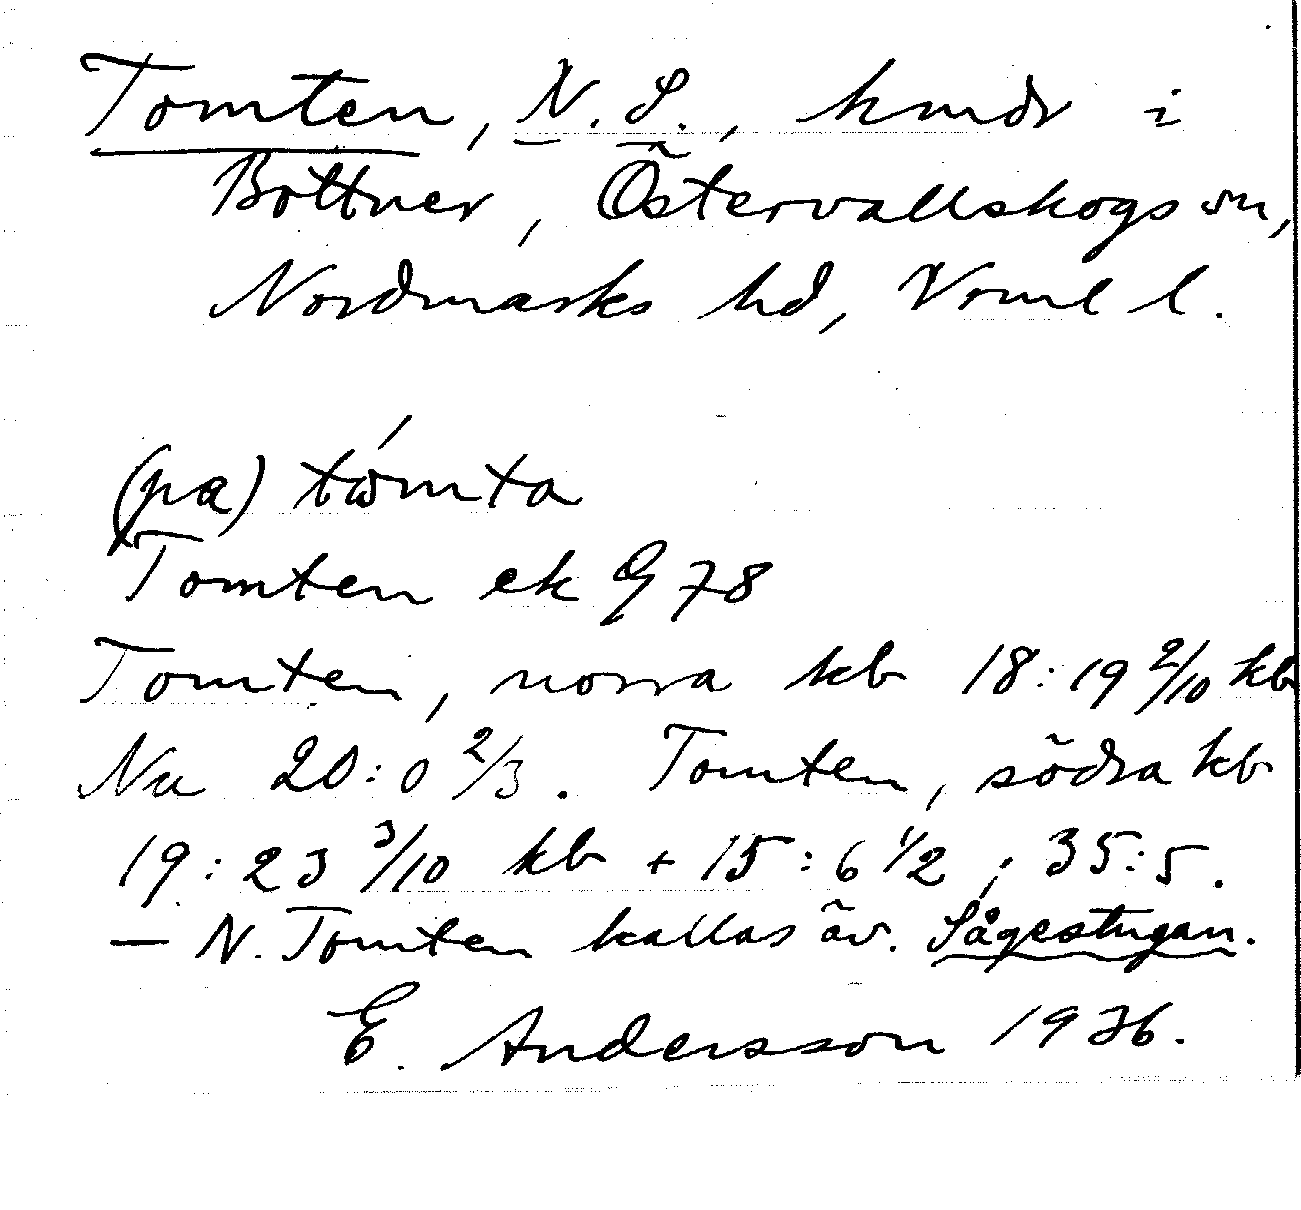 Tomten, N. S., hmdr i
Bottner, Östervallskogs sn,
Nordmarks hd, Vrml l.
(pa) tómta
Tomten ek G 78
Tomten, norra kb 18:19 2/10 kb
Na 20:0 2/3. Tomten, södra kb
19:23 3/10 kb + 15:6 1/2, 35:5.
— N. Tomten kallas äv. Sågestugan.
E. Andersson 1936.